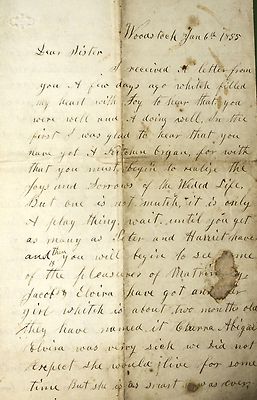 Woodstock Jan 6th 1855
Dear Sister
I received A letter from
you A few days ago whitch filled
my heart with Joy to hear that you
were well and A doing well. In the
first I was glad to hear that you
have got A Organ, for with
that you must begin to realize the
Joys and Sorrows of the Weded Life,
But one is not mutch, it is only
A play thing, wait until you get
as many as Peter and Harriet have
and then you will begin to see some
of the pleasures of
Jacob & Elvira have got another
girl whitch is about two months old
they have named it Abigail
Elvira was verry sick we did not
expect she would live for some
time But she is as smart as ever,